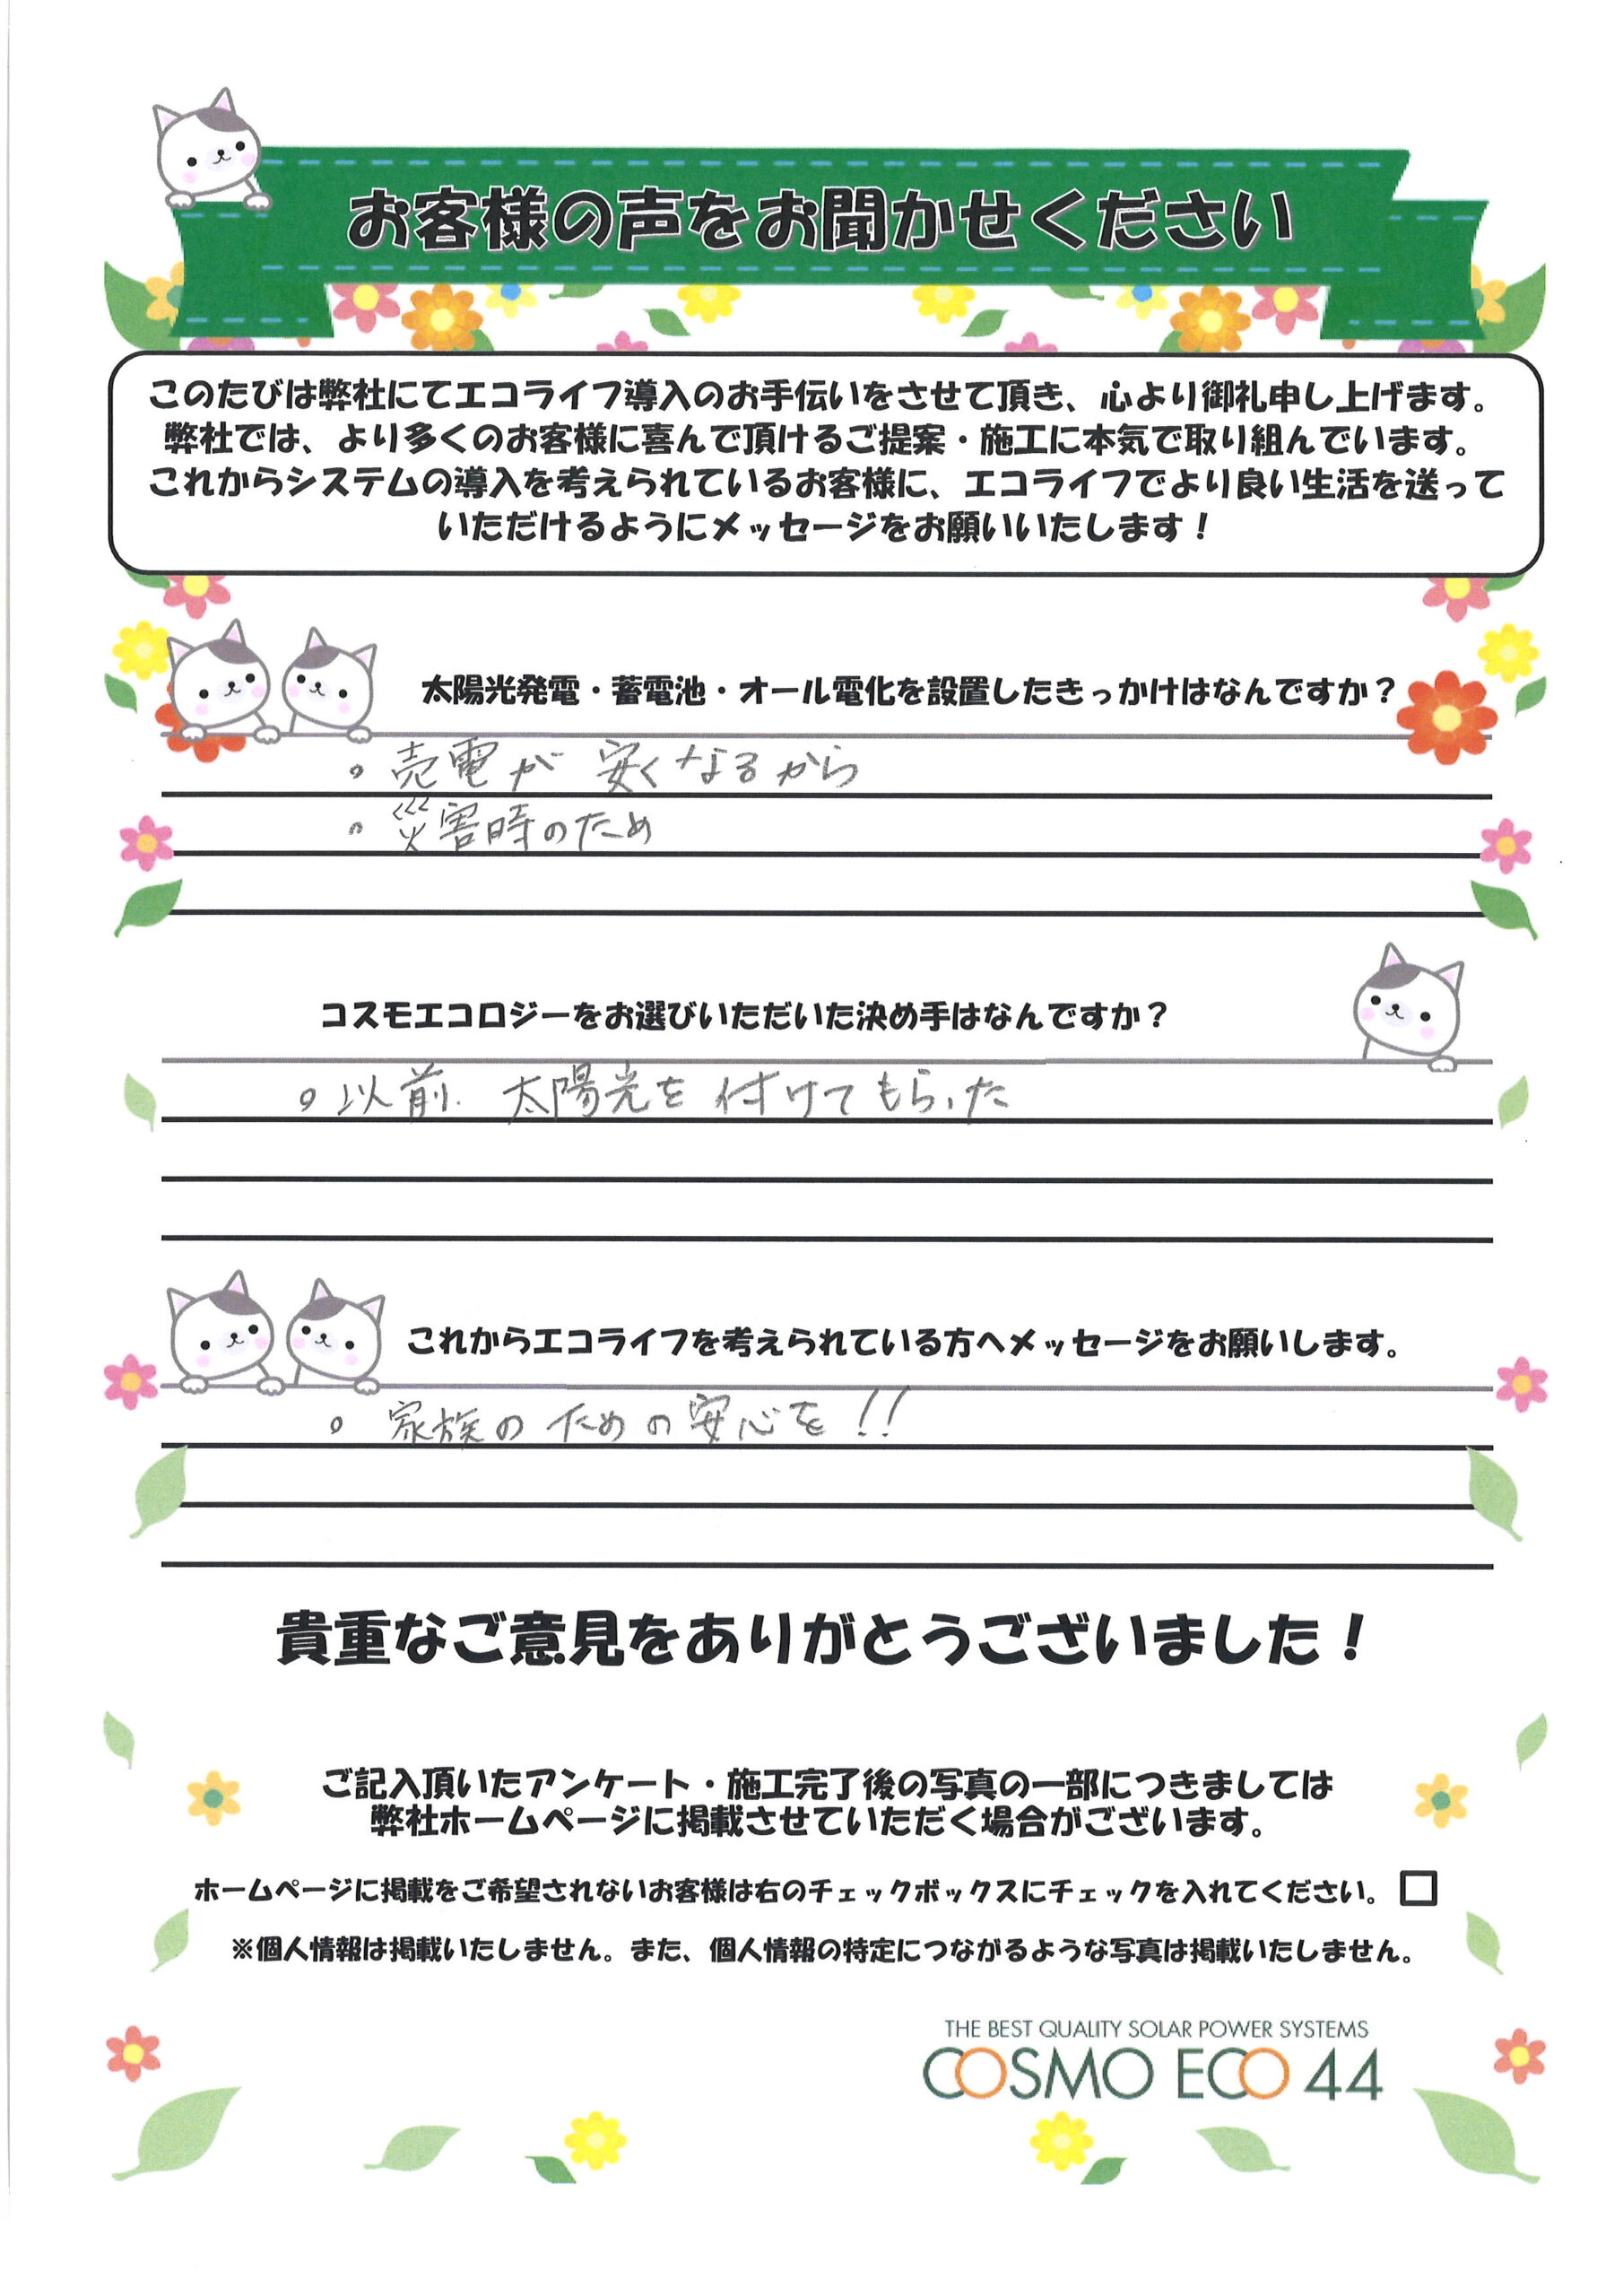 お客様の声をお聞かせください
このたびは弊社にてエコライフ導入のお手伝いをさせて頂き、心より御礼申し上げます。
弊社では、より多くのお客様に喜んで頂けるご提案・施工に本気で取り組んでいます。
これからシステムの導入を考えられているお客様に、エコライフでより良い生活を送って
いただけるようにメッセージをお願いいたします！
太陽光発電・蓄電池・オール電化を設置したきっかけはなんですか？
。売電が 安くなるから
。災害時のため
コスモエコロジーをお選びいただいた決め手はなんですか？
。以前、太陽光を付けてもらった
これからエコライフを考えられている方へメッセージをお願いします。
。家族のための安心を!!
貴重なご意見をありがとうございました！
ご記入頂いたアンケート・施工完了後の写真の一部につきましては
弊社ホームページに掲載させていただく場合がございます。
ホームページに掲載をご希望されないお客様は右のチェックボックスにチェックを入れてください。 □
※個人情報は掲載いたしません。また、個人情報の特定につながるような写真は掲載いたしません。
THE BEST QUALITY SOLAR POWER SYSTEMS
COSMO ECO 44